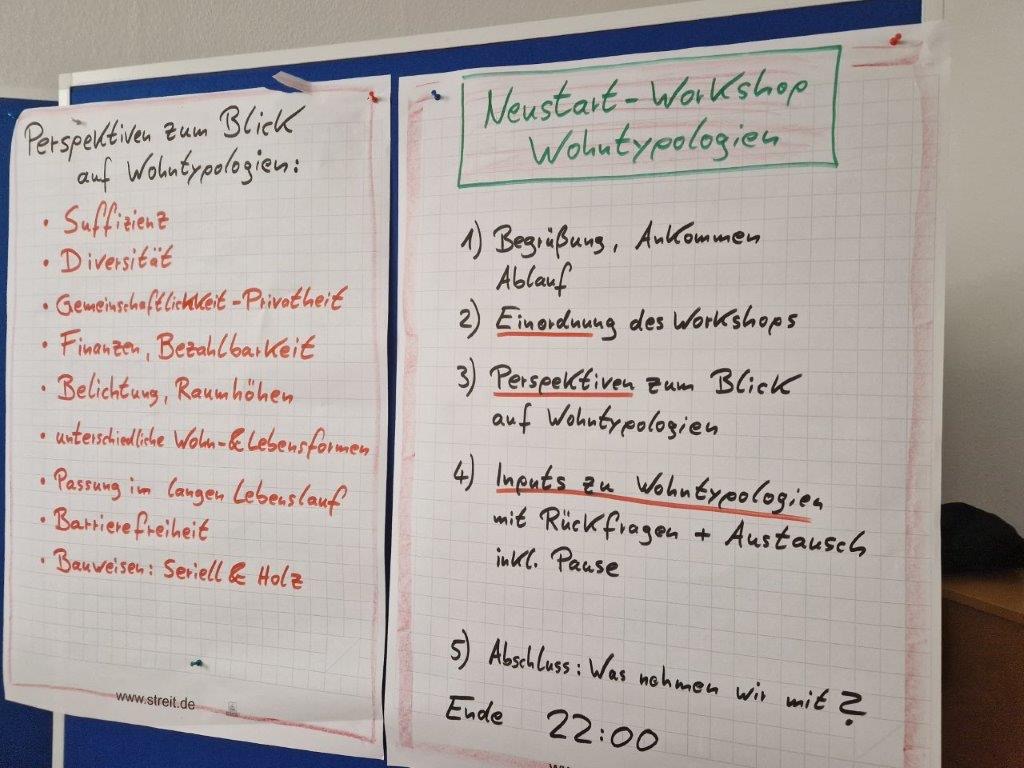 Perspektiven zum Blick
auf Wohntypologien:
• Suffizienz
• Diversität
• Gemeinschaftlichkeit-Privatheit
• Finanzen, Bezahlbarkeit
• Belichtung, Raumhöhen
• unterschiedliche Wohn-&Lebensformen
• Passung im langen Lebenslauf
• Barrierefreiheit
• Bauweisen: Seriell & Holz
www.streit.de
Neustart-Workshop
Wohntypologien
1) Begrüßung, Ankommen
Ablauf
2) Einordnung des Workshops
3) Perspektiven zum Blick
auf Wohntypologien
4) Inputs zu Wohntypologien
mit Rückfragen + Austausch
inkl. Pause
5) Abschluss: Was nehmen wir mit?
Ende 22:00